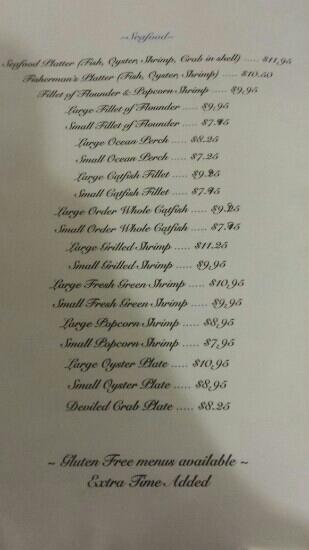 ~Seafood~
Seafood Platter (Fish, Oyster, Shrimp, Crab in shell) ..... $11.95
Fisherman's Platter (Fish, Oyster, Shrimp) ..... $10.50
Fillet of Flounder & Popcorn Shrimp ..... $9.95
Large Fillet of Flounder ..... $9.95
Small Fillet of Flounder ..... $7.95
Large Ocean Perch ..... $8.25
Small Ocean Perch ..... $7.25
Large Catfish Fillet ..... $9.25
Small Catfish Fillet ..... $7.95
Large Order Whole Catfish ..... $9.25
Small Order Whole Catfish ..... $7.95
Large Grilled Shrimp ..... $11.25
Small Grilled Shrimp ..... $9.95
Large Fresh Green Shrimp ..... $10.95
Small Fresh Green Shrimp ..... $9.95
Large Popcorn Shrimp ..... $8.95
Small Popcorn Shrimp ..... $7.95
Large Oyster Plate ..... $10.95
Small Oyster Plate ..... $8.95
Deviled Crab Plate ..... $8.25
~ Gluten Free menus available ~
Extra Time Added